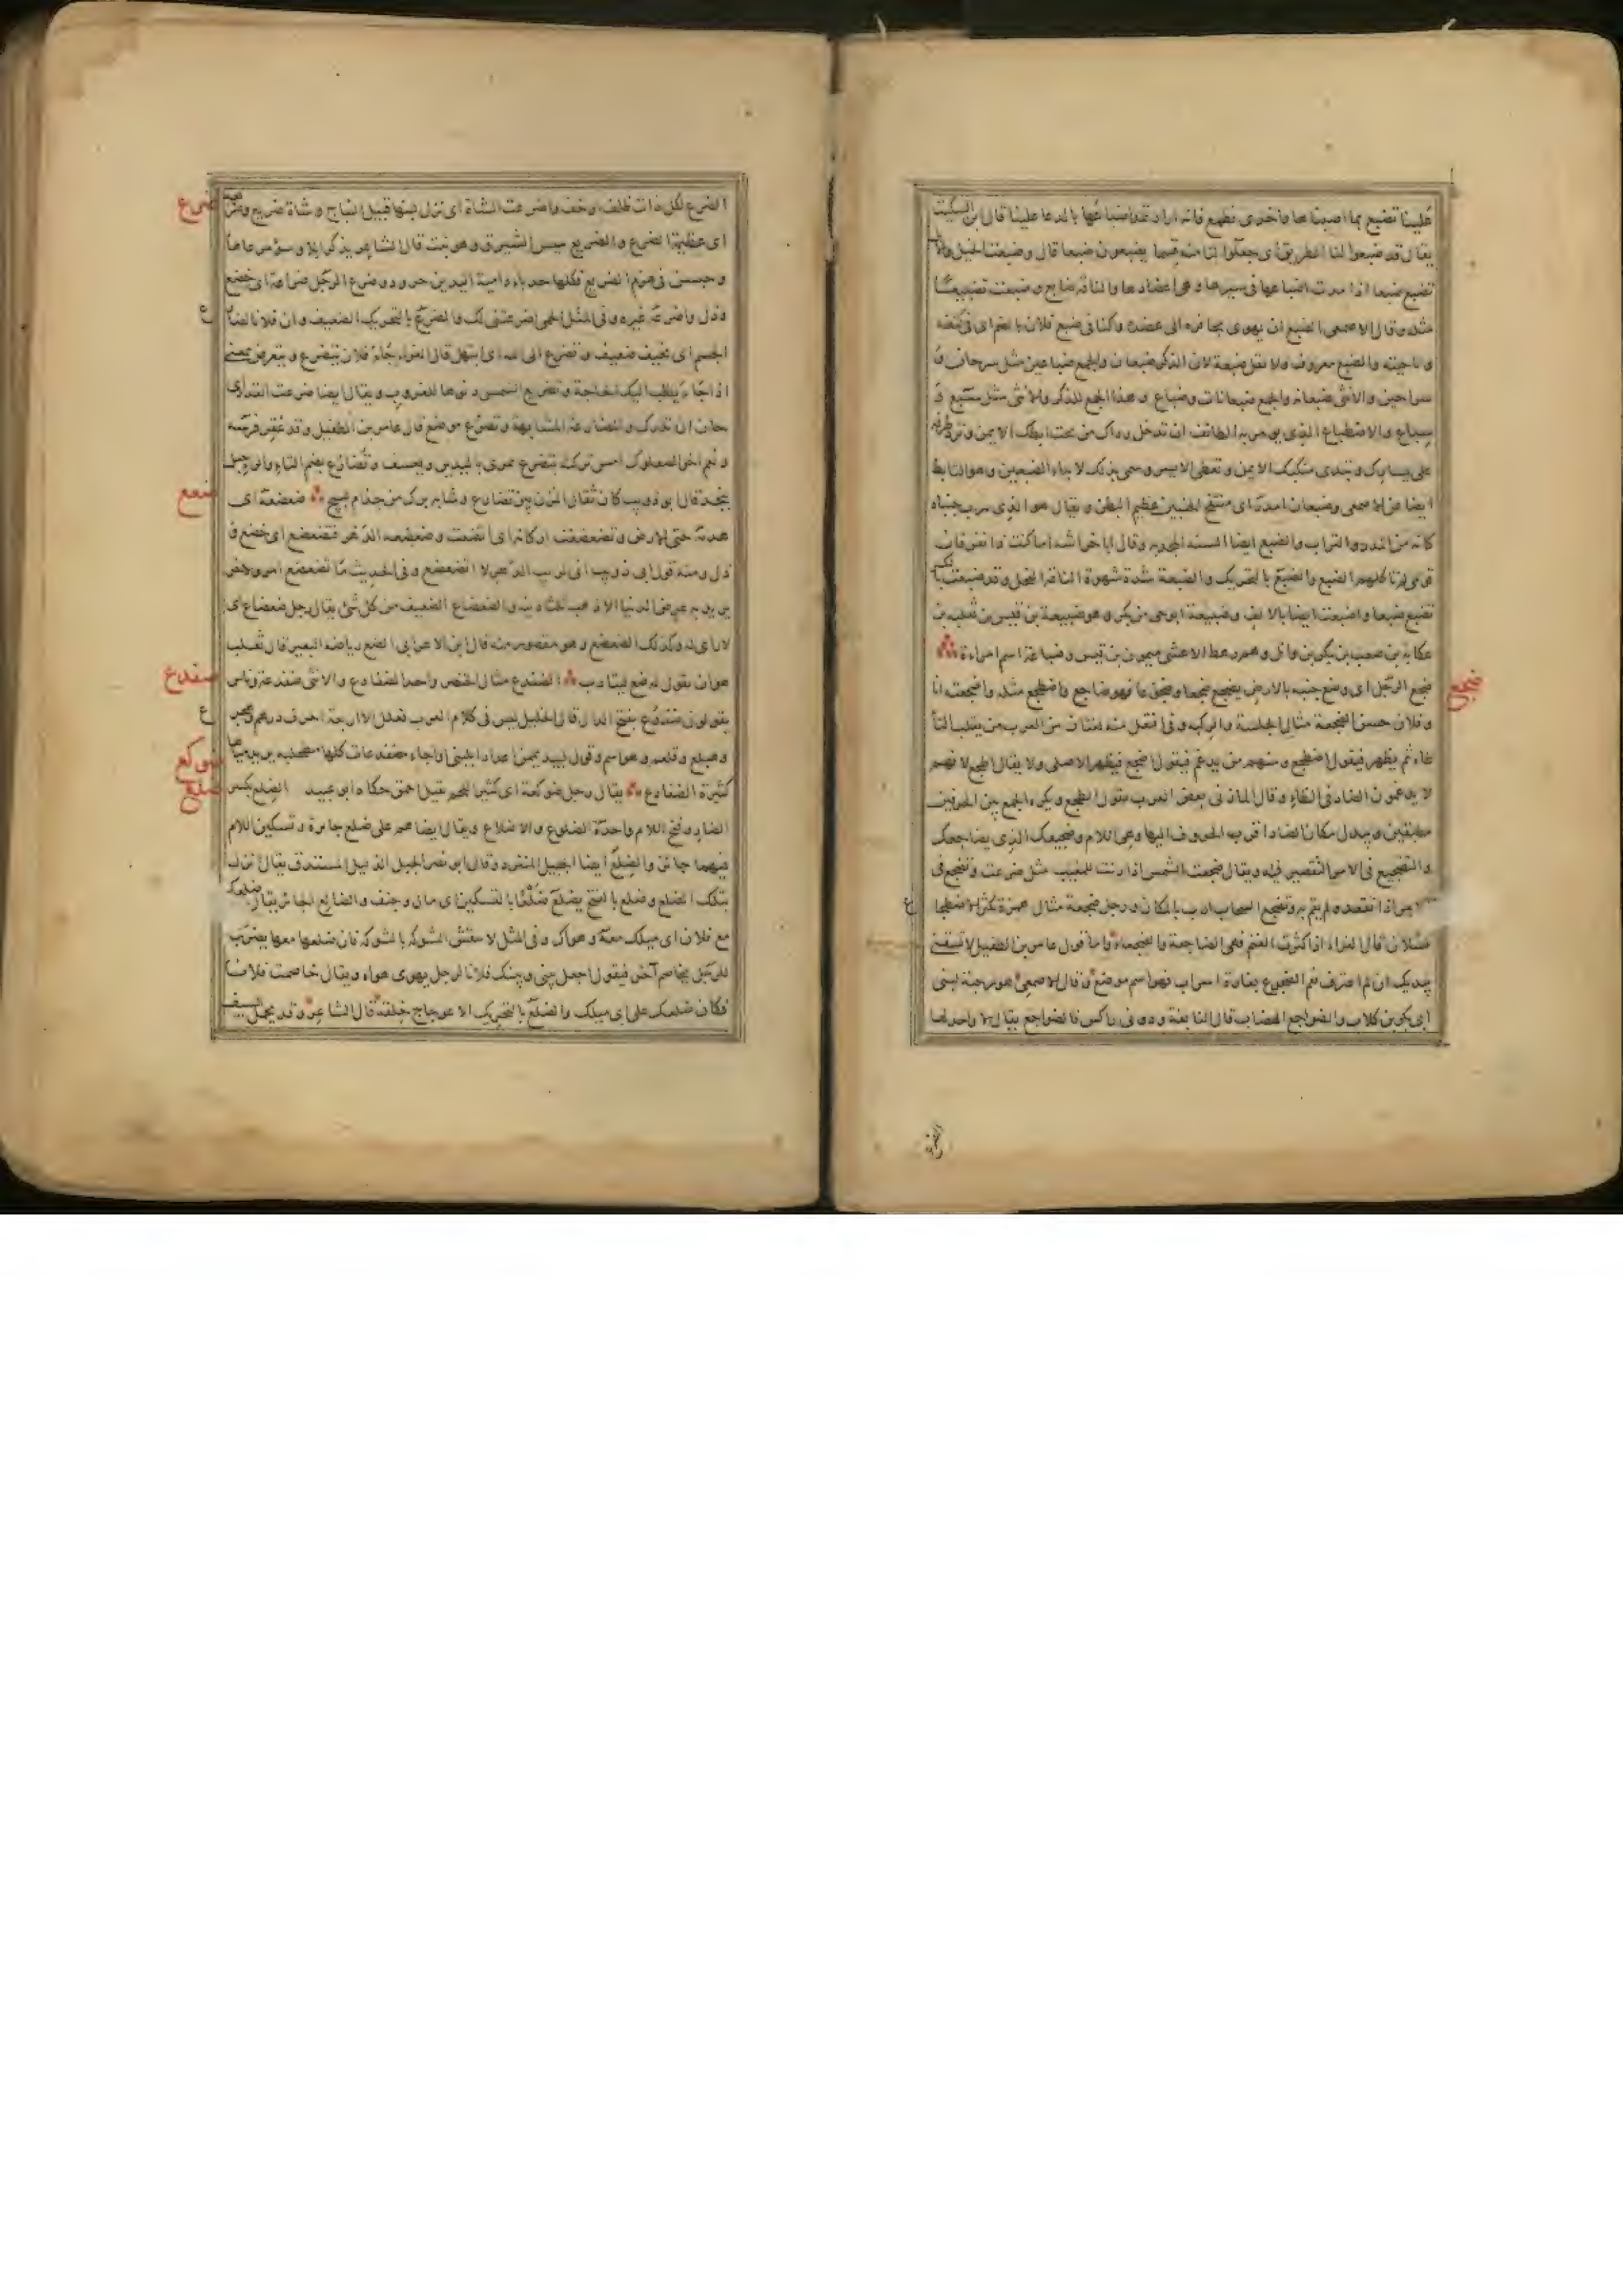 علينا تضبع بما اصبنا منها واخرى نطبع فانه اراد تمد اضباعها بالدعا علينا قال ابن السكيت
يقال قد ضبعوا لنا الطريق اى جعلوا لنا منه قسما يضبعون ضبعا قال وضبعت الخيل والابل
تضبع ضبعا اذا مدت اضباعها فى سيرها وهى اعضادها والناقة ضابع وضبعت تضبيعا
مثله وقال الاصمعى الضبع ان يهوى بحافره الى عضده وكنا فى ضبع فلان بالضم اى فى كنفه
وناحيته والضبع معروف ولا تقل ضبعة لان الذكر ضبعان والجمع ضباعين مثل سرحان و
سراحين والانثى ضبعانة والجمع ضبعانات وضباع وهذا الجمع للذكر والانثى مثل سبع و
سباع والاضطباع الذى يومر به الطائف ان تدخل رداك من تحت ابطك الايمن وترد طرفه
على يسارك وتبدى منكبك الايمن وتغطى الايسر وسمى بذلك لابداء الضبعين وهو التابط
ايضا عن الاصمعى وضبعان امدر اى منتفخ الجنبين عظيم البطن ويقال هو الذى تترب جنباه
كانه من المدر والتراب والضبع ايضا السنة المجدبة وقال ابا خراشة اما كنت ذا نفر فان
قومى لم تاكلهم الضبع والضبع بالتحريك والضبعة شدة شهوة الناقة للفحل وقد ضبعت بالكسر
تضبع ضبعا واضبعت ايضا بالالف وضبيعة ابو حى من بكر وهو ضبيعة بن قيس بن ثعلبه بن
عكابة بن صعب بن بكر بن وائل وهم رهط الاعشى ميمون بن قيس وضباعة اسم امراءة
ضجع
ضجع الرجل اى وضع جنبه بالارض يضجع ضجعا وضجوعا فهو ضاجع واضطجع مثله واضجعته انا
وفلان حسن الضجعة مثال الجلسة والركبه وفى افتعل منه لغتان من العرب من يقلب التاء
طاء ثم يظهر فيقول اضطجع ومنهم من يدغم فيقول اضجع فيظهر الاصلى ولا يقال اطجع لانهم
لا يدغمون الضاد فى الطاء وقال المازنى بعض العرب يقول الطجع ويكره الجمع بين الحرفين
مطبقين ويبدل مكان الضاد اقرب الحروف اليها وهى اللام وضجيعك الذى يضاجعك
والتضجيع فى الامر التقصير فيه ويقال ضجعت الشمس اذا دنت للمغيب مثل ضرعت وتضجع فى
الامر اذا تقعد ولم يقم به وتضجع السحاب ارب بالمكان ورجل ضجعة مثال همزة يكثر الاضطجاع
كسلان قال الفراء اذا كثرت الغنم فهى الضاجعة والضجعاء واما قول عامر بن الطفيل لا تسقنى
بيديك ان لم اغترف نعم الضجوع بغارة اسراب فهو اسم موضع وقال الاصمعى هو رحبة لبنى
ابى بكر بن كلاب والضواجع الهضاب قال النابغة ودونى راكس فالضواجع يقال لا واحد لها
الضرع
ضرع
الضرع لكل ذات ظلف وخف واضرعت الشاة اى نزل لبنها قبيل النتاج وشاة ضريع وضريعة
اى عظيمة الضرع والضريع يبيس الشبرق وهو نبت قال الشاعر يذكر ابلا وسوء مرعاها
وحبسن فى هزم الضريع فكلها حدباء دامية اليدين حرود وضرع الرجل ضراعة اى خضع
وذل واضرعه غيره وفى المثل الحمى اضرعتنى لك والضرع بالتحريك الضعيف وان فلانا لضارع
الجسم اى نحيف ضعيف وتضرع الى الله اى ابتهل قال الفراء جاء فلان يتضرع ويتعرض بمعنى
اذا جاء يطلب اليك الحاجة وتضريع الشمس دنوها للغروب ويقال ايضا ضرعت القدر اى
حان ان تدرك والمضارعة المشابهة وتضرع موضع قال عامر بن الطفيل وقد عقر فرسه
ونعم اخو الصعلوك امس تركته بتضرع يمرى باليدين ويعسف وتضارع بضم التاء والراء جبل
ضعع
بنجد قال ابو ذويب كان ثقال المزن بين تضارع وشابة برك من جذام لبيج ضعضعه اى
هدمه حتى الارض وتضعضعت اركانه اى اتضعت وضعضعه الدهر فتضعضع اى خضع و
ذل ومنه قول ابى ذويب انى لريب الدهر لا اتضعضع وفى الحديث ما تضعضع امرو لاخر
يريد به عرض الدنيا الا ذهب ثلثا دينه والضعضاع الضعيف من كل شئ يقال رجل ضعضاع اى
لا راى له وكذلك الضعضع وهو مقصور منه قال ابن الاعرابى الضع رياضة البعير قال ثعلب
ضفدع
هو ان يقول له ضع ليتادب الضفدع مثال الخنصر واحد الضفادع والانثى ضفدعة وناس
يقولون ضفدع بفتح الدال قال الخليل ليس فى كلام العرب فعلل الا اربعة احرف درهم وهجرع
وهبلع وقلعم وهو اسم وقول لبيد يممن اعدادا بلبنى او اجاء مضفدعات كلها مطحلبه يريد مياها
ضوكع
ضلع
كثيرة الضفادع يقال رجل ضوكعة اى كثير اللحم ثقيل احمق حكاه ابو عبيد الضلع بكسر
الضاد وفتح اللام واحدة الضلوع والاضلاع ويقال ايضا هم على ضلع جائرة وتسكين اللام
فيهما جائز والضلع ايضا الجبيل المنفرد وقال ابو نصر الجبل الذليل المستدق يقال انزل
بتلك الضلع وضلع بالفتح يضلع ضلعا بالتسكين اى مال وجنف والضالع الجائر يقال ضلعك
مع فلان اى ميلك معه وهواك وفى المثل لا تنقش الشوكة بالشوكة فان ضلعها معها يضرب
للرجل يخاصم آخر فيقول اجعل بينى وبينك فلانا لرجل يهوى هواه ويقال خاصمت فلانا
فكان ضلعك على اى ميلك والضلع بالتحريك الاعوجاج خلقة قال الشاعر وقد يحمل السيف